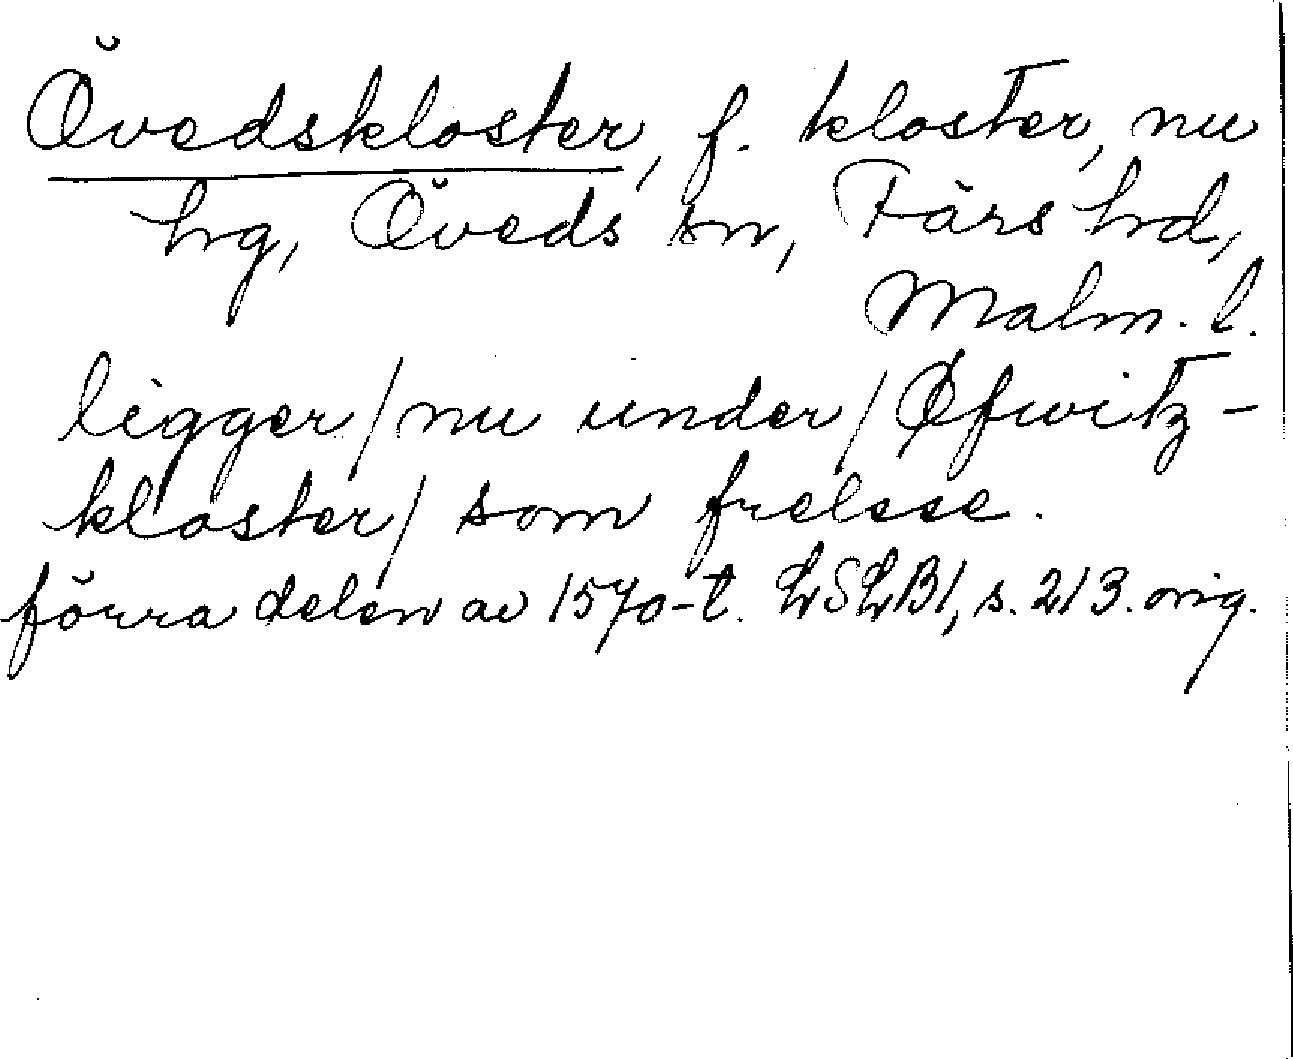 Övedskloster, f. kloster, nu
hg, Öveds sn, Färs hd,
Malm. l.
ligger/nu under/Øfwitz-
kloster/ som frelsse.
förra delen av 1570-t. LSLB1, s. 213. orig.